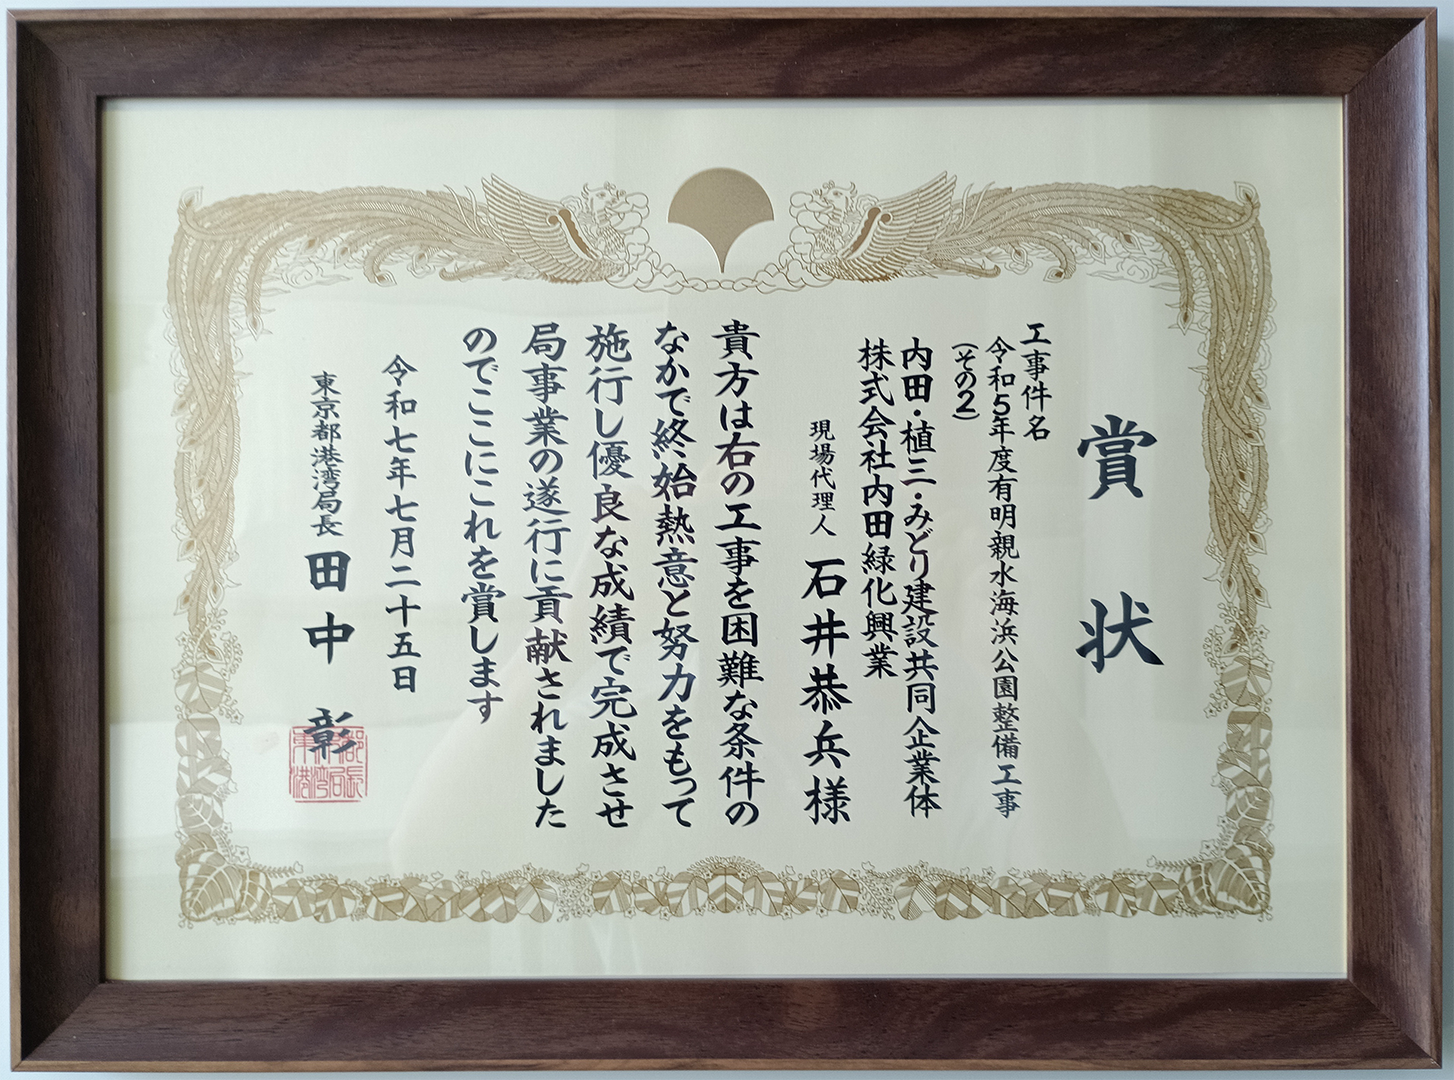 賞状
工事件名
令和5年度有明親水海浜公園整備工事
(その2)
内田・植三・みどり建設共同企業体
株式会社内田緑化興業
現場代理人 石井恭兵様
貴方は右の工事を困難な条件の
なかで終始熱意と努力をもって
施行し優良な成績で完成させ
局事業の遂行に貢献されました
のでここにこれを賞します
令和七年七月二十五日
東京都港湾局長 田中彰